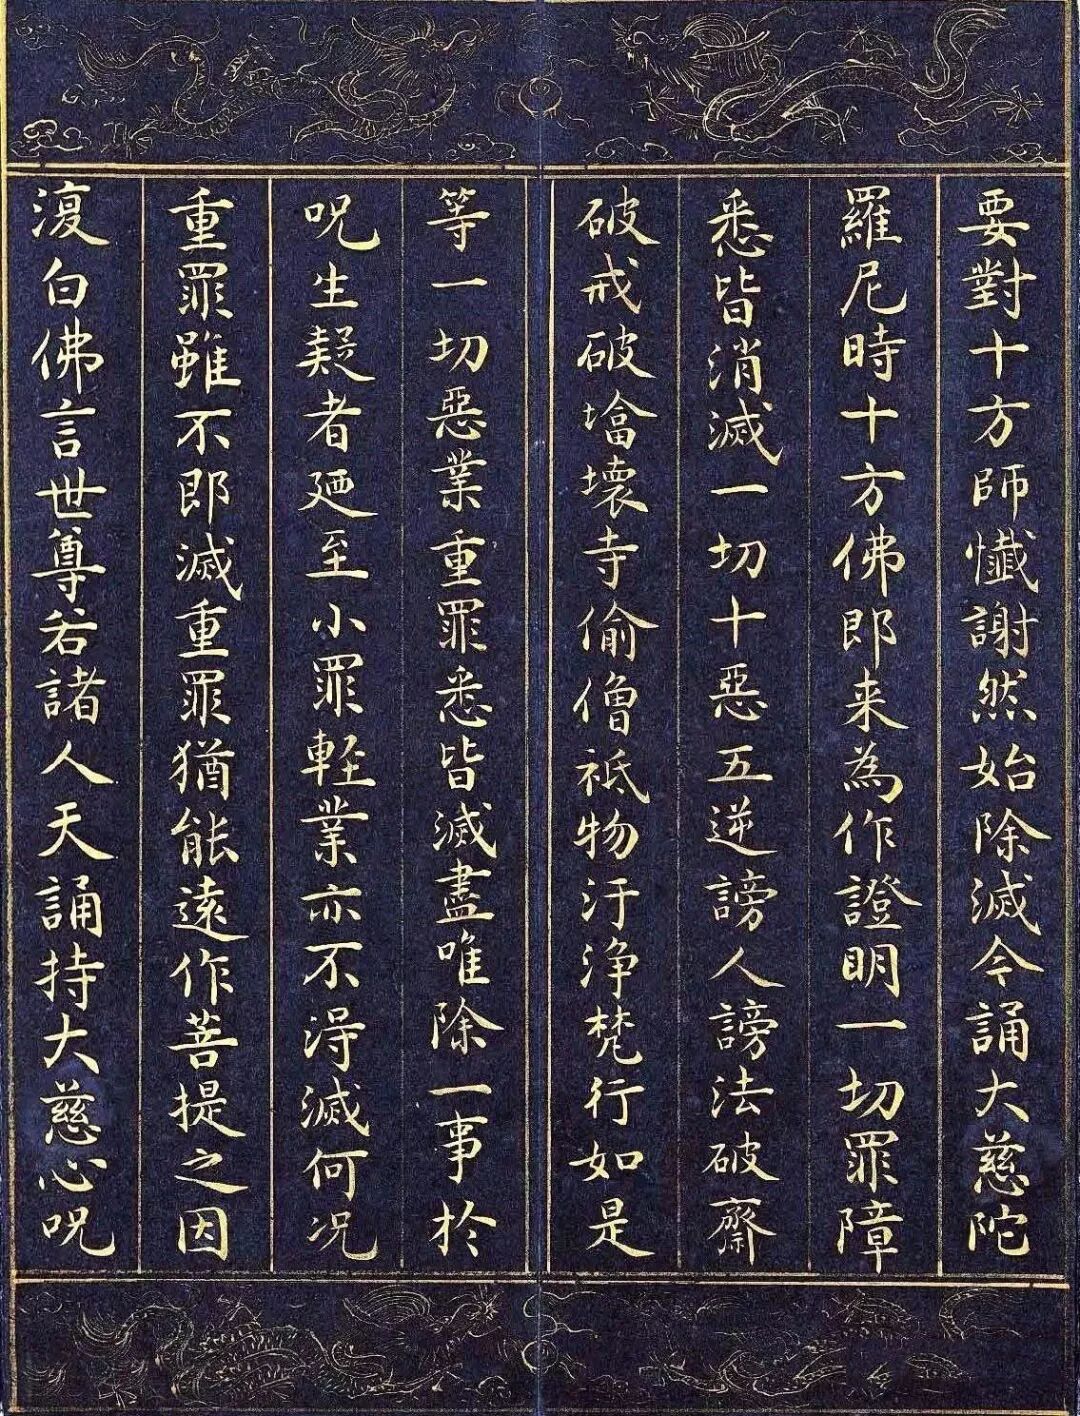 要對十方師懺謝然始除滅今誦大慈陀
羅尼時十方佛即来為作證明一切罪障
悉皆消滅一切十惡五逆謗人謗法破齋
破戒破塔壞寺偷僧祇物汙浄梵行如是
等一切惡業重罪悉皆滅盡唯除一事於
呪生疑者廼至小罪軽業亦不淂滅何况
重罪雖不即滅重罪猶能遠作菩提之因
澓白佛言世尊若諸人天誦持大慈心呪